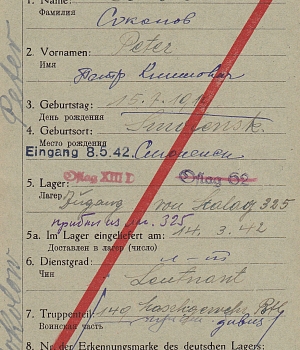 1. Name:
Фамилия
Соколов
2. Vornamen: Peter
Имя
Петр Климович
3. Geburtstag: 15.7.191
День рождения
4. Geburtsort: Smolensk.
Место рождения
Eingang 8.5.42. Смоленск
5. Lager: Oflag XIII D Oflag 62
Лагерь Zugang von Stalag 325
прибыл из 325
5a. Im Lager eingeliefert am: 14.3.42
Доставлен в лагерь (число)
6. Dienstgrad: л-т
Чин Leutnant
7. Truppenteil: 140 Btl
Воинская часть дивиз
8. Nr. der Erkennungsmarke des deutschen Lagers:
Peter
Sokolow